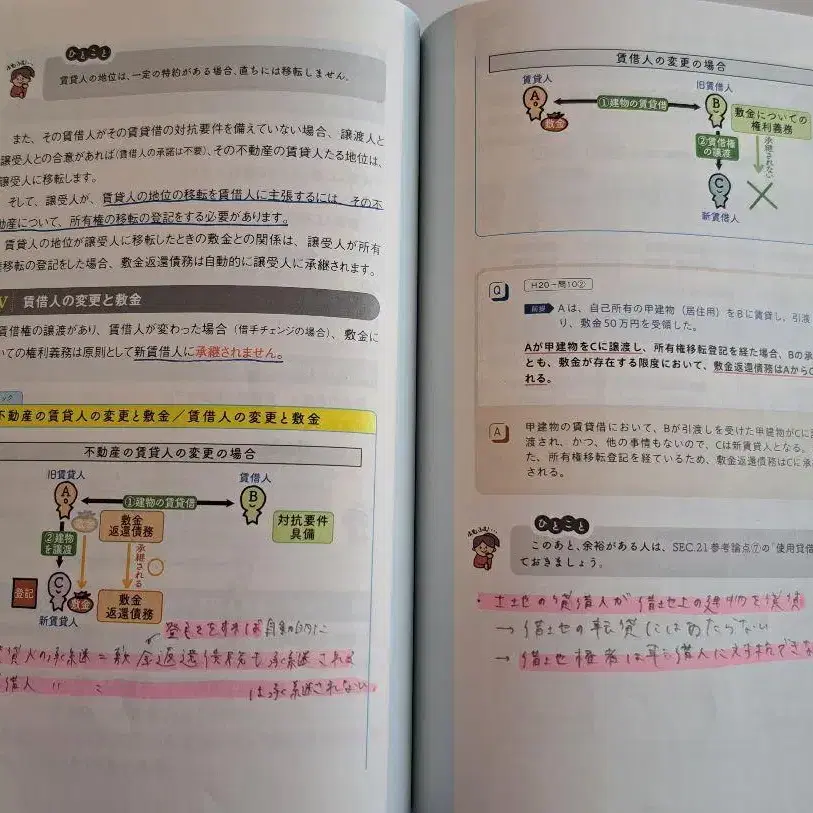 ひとこと
賃貸人の地位は、一定の特約がある場合、直ちには移転しません。
また、その賃借人がその賃貸借の対抗要件を備えていない場合、譲渡人と
譲受人との合意があれば(賃借人の承諾は不要)、その不動産の賃貸人たる地位は、
譲受人に移転します。
そして、譲受人が、賃貸人の地位の移転を賃借人に主張するには、その不
動産について、所有権の移転の登記をする必要があります。
賃貸人の地位が譲受人に移転したときの敷金との関係は、譲受人が所有
移転の登記をした場合、敷金返還債務は自動的に譲受人に承継されます。
賃借人の変更と敷金
賃借権の譲渡があり、賃借人が変わった場合(借手チェンジの場合)、敷金に
いての権利義務は原則として新賃借人に承継されません。
ック
不動産の賃貸人の変更と敷金/賃借人の変更と敷金
不動産の賃貸人の変更の場合
旧賃貸人
賃借人
A
①建物の賃貸借
B
敷金
敷金
返還債務
対抗要件
具備
②建物
を譲渡
承継される
登記
C
敷金
敷金
返還債務
新賃貸人
登記をすれば自動的に
賃貸人の承継=敷金返還債務も承継される
借人 〃 は承継されない
賃借人の変更の場合
賃貸人
旧賃借人
A
①建物の賃貸借
B
敷金
敷金についての
権利義務
②賃借権
の譲渡
承継されない
C
新賃借人
Q
H20-問10②
前提
Aは、自己所有の甲建物(居住用)をBに賃貸し、引渡
り、敷金50万円を受領した。
Aが甲建物をCに譲渡し、所有権移転登記を経た場合、Bの承
とも、敷金が存在する限度において、敷金返還債務はAからC
れる。
A
甲建物の賃貸借において、Bが引渡しを受けた甲建物がCに
渡され、かつ、他の事情もないので、Cは新賃貸人となる。
た、所有権移転登記を経ているため、敷金返還債務はCに承
される。
ひとこと
このあと、余裕がある人は、SEC.21参考論点⑦の「使用貸借
ておきましょう。
・土地の賃借人が借地上の建物を賃貸
→借地の転貸にはあたらない
→借地権者は